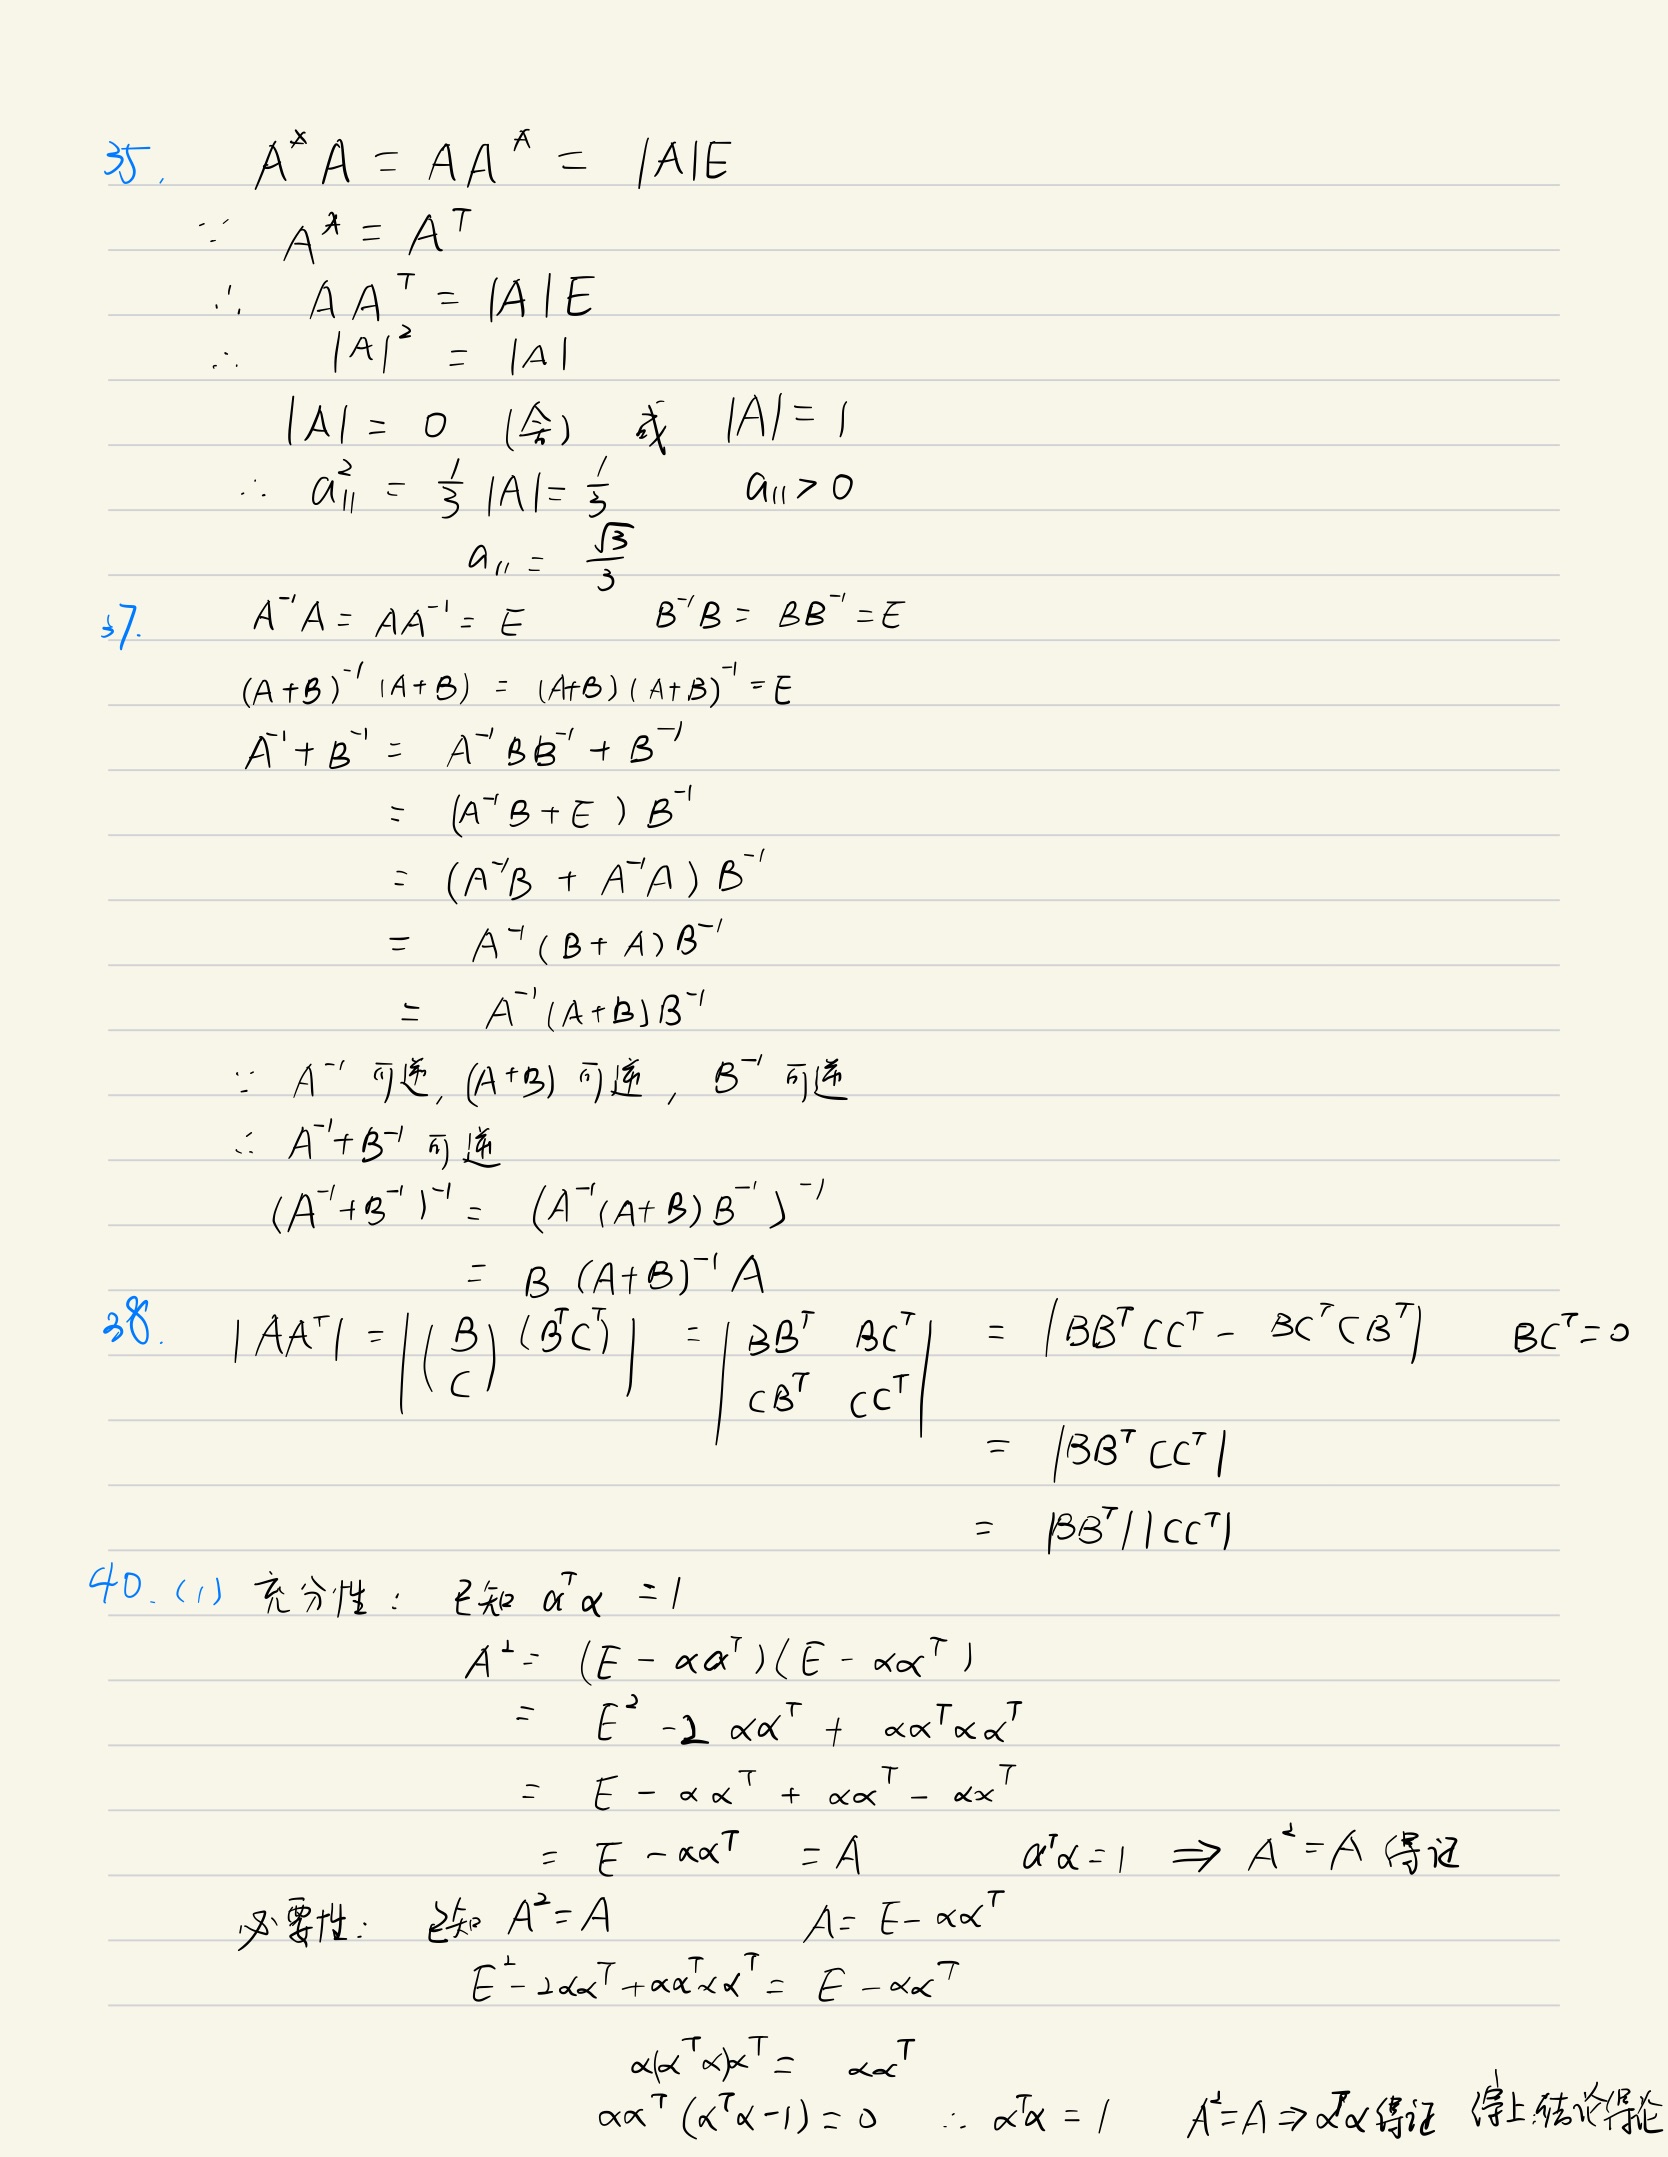 35. A*A = AA* = |A|E
∵ A* = Aᵀ
∴ AAᵀ = |A|E
∴ |A|² = |A|
|A| = 0 (舍) 或 |A| = 1
∴ a₁₁² = 1/3 |A| = 1/3 a₁₁ > 0
a₁₁ = √3/3
37. A⁻¹A = AA⁻¹ = E B⁻¹B = BB⁻¹ = E
(A+B)⁻¹(A+B) = (A+B)(A+B)⁻¹ = E
A⁻¹ + B⁻¹ = A⁻¹BB⁻¹ + B⁻¹
= (A⁻¹B + E) B⁻¹
= (A⁻¹B + A⁻¹A) B⁻¹
= A⁻¹(B + A)B⁻¹
= A⁻¹(A+B)B⁻¹
∵ A⁻¹ 可逆, (A+B) 可逆, B⁻¹ 可逆
∴ A⁻¹+B⁻¹ 可逆
(A⁻¹+B⁻¹)⁻¹ = (A⁻¹(A+B)B⁻¹)⁻¹
= B (A+B)⁻¹ A
38. |AAᵀ| = |(B C) (Bᵀ Cᵀ)| = |BBᵀ BCᵀ CBᵀ CCᵀ| = |BBᵀCCᵀ - BCᵀCBᵀ| BCᵀ = 0
= |BBᵀ CCᵀ|
= |BBᵀ||CCᵀ|
40. (1) 充分性: 已知 αᵀα = 1
A² = (E - ααᵀ)(E - ααᵀ)
= E² - 2 ααᵀ + ααᵀααᵀ
= E - ααᵀ + ααᵀ - ααᵀ
= E - ααᵀ = A αᵀα = 1 ⇒ A² = A 得证
必要性: 已知 A² = A A = E - ααᵀ
E² - 2ααᵀ + ααᵀααᵀ = E - ααᵀ
α(αᵀα)αᵀ = ααᵀ
ααᵀ(αᵀα - 1) = 0 ∴ αᵀα = 1 A² = A ⇒ αᵀα 得证 综上结论得论